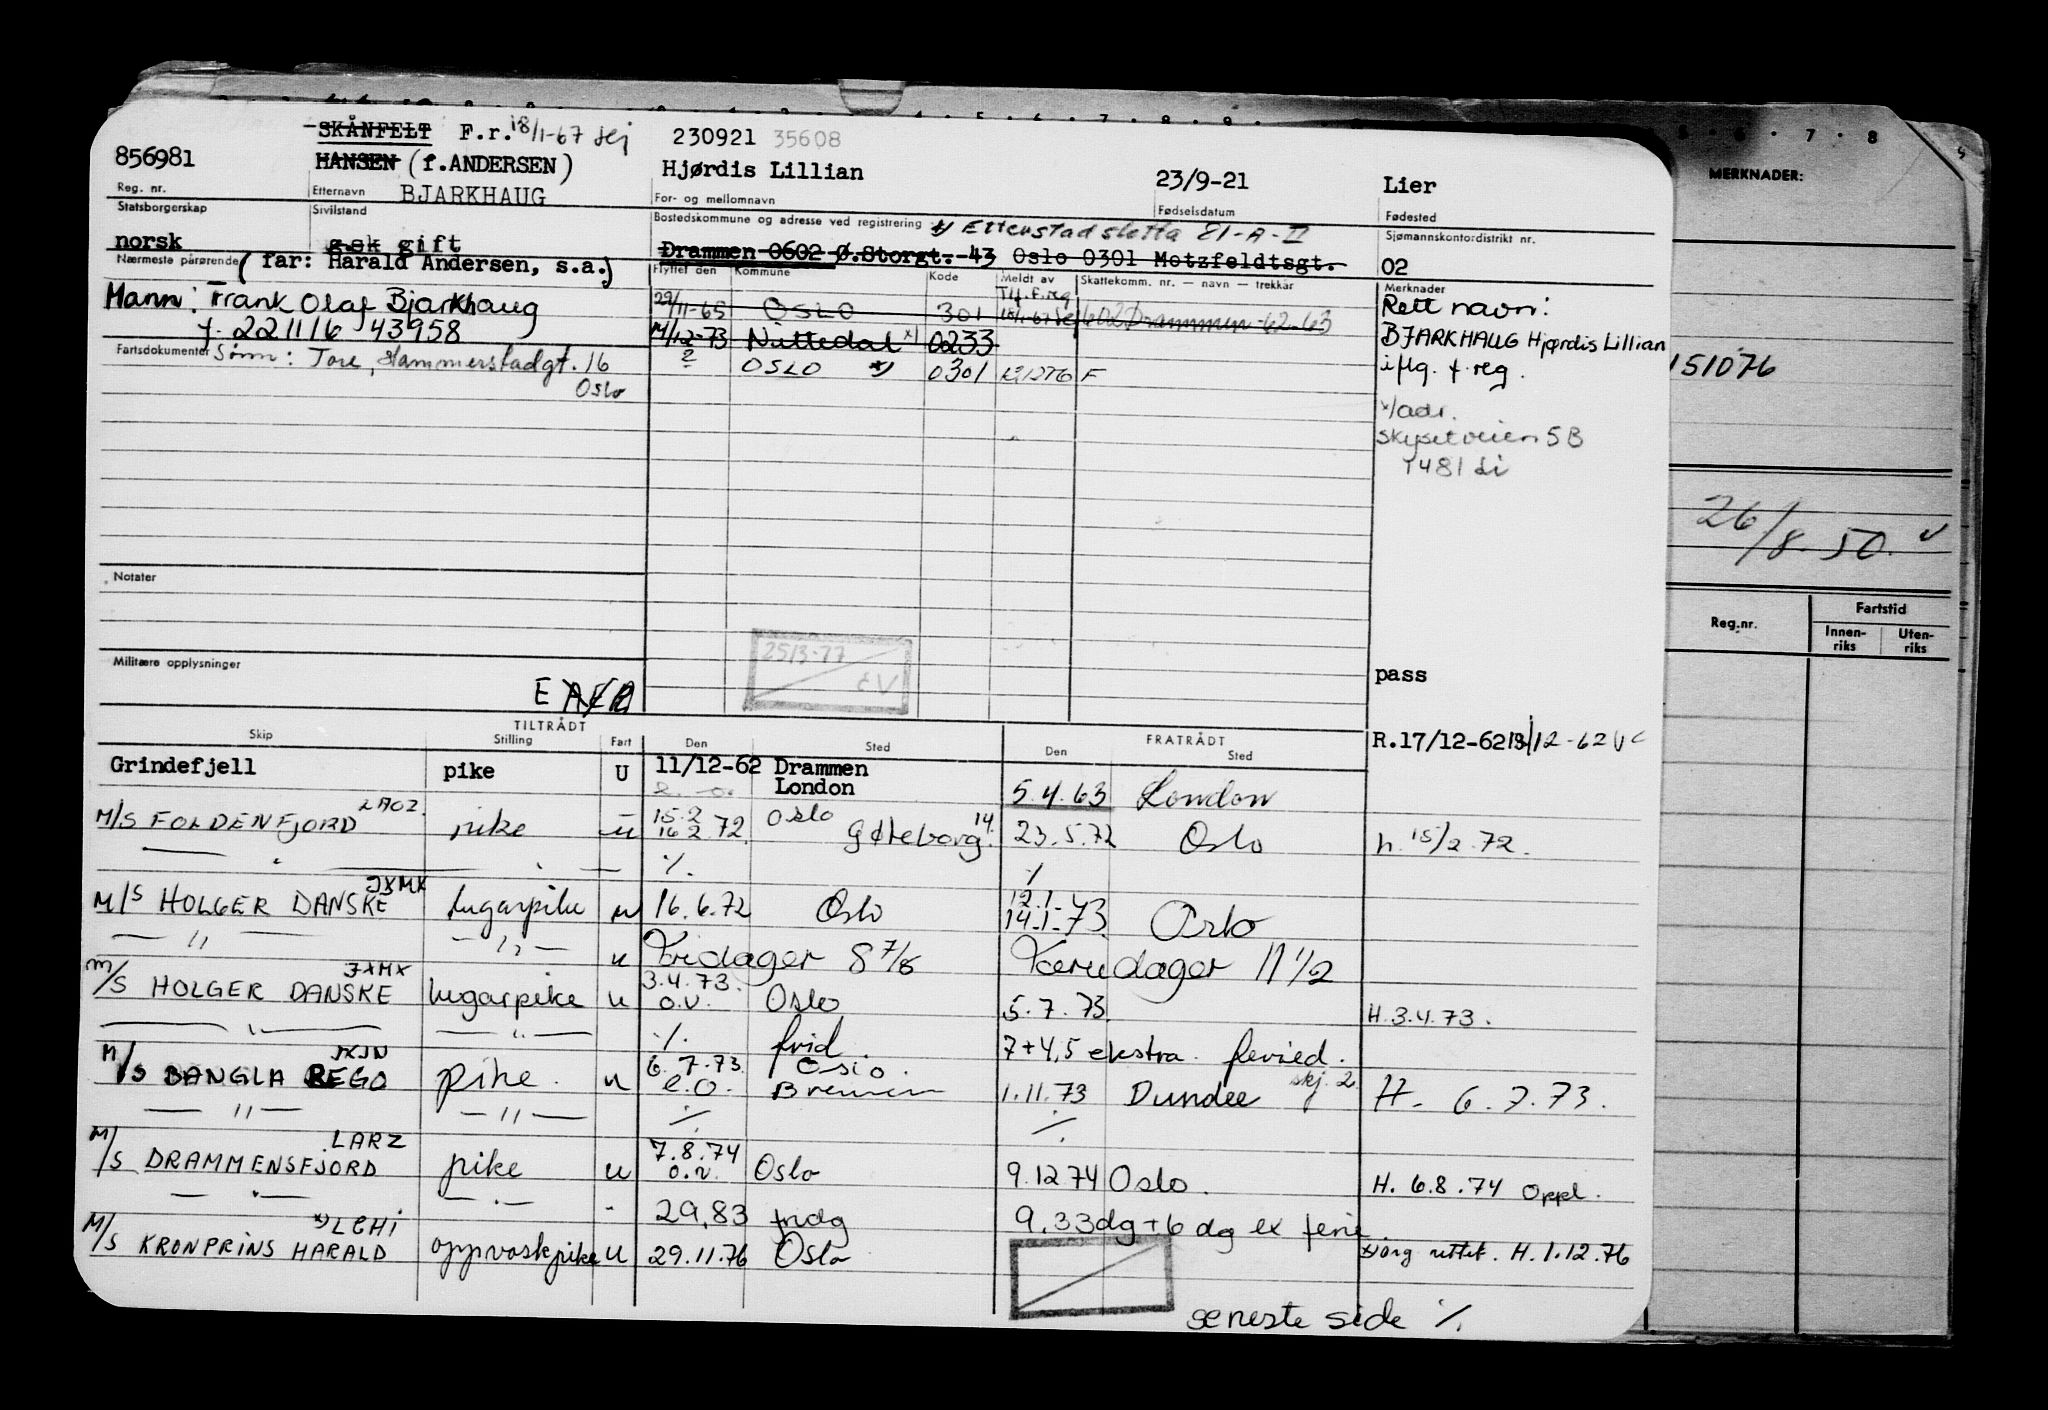 SKÅNFELT F.r. 18/1-67 sej 230921 35608
856981 HANSEN (f. ANDERSEN) Hjørdis Lillian 23/9-21 Lier
Reg. nr. Etternavn BJARKHAUG For- og mellomnavn Fødselsdatum Fødested
Statsborgerskap Sivilstand Bostedskommune og adresse ved registrering x) Etterstadsletta 81-A-II Sjømannskontordistrikt nr.
norsk g.sk gift Drammen 0602 Ø.Storgt. 43 Oslo 0301 Motzfeldtsgt. 02
Nærmeste pårørende (far: Harald Andersen, s.a.) Flyttet den Kommune Kode Meldt av Skattekomm. nr. — navn — trekkår Merknader
Mann: Frank Olaf Bjarkhaug 29/11-65 OSLO 301 Tlf.f.reg 18/1-67 sej 602 Drammen -62-63 Rett navn:
f. 221116 43958 11/12-73 Nittedal x) 0233 BJARKHAUG Hjørdis Lillian
Fartsdokumenter Sønn: Tore, Hammerstadgt. 16 ? OSLO x) 0301 F iflg. f. reg. 151076
Oslo
x/adr.
5B
1481 Li
MERKNADER:
26/8. 50. v
Notater
Reg.nr. Fartstid
Innen-riks Uten-riks
25/3-77
EV
Militære opplysninger pass
E
TILTRÅDT FRATRÅDT R.17/12-62
Skip Stilling Fart Den Sted Den Sted
Grindefjell pike U 11/12-62 Drammen
London 5.4.63 London
M/S FOLDENFJORD LAOZ pike u 15.2 16.2 72 Oslo Gøteborg 14. 23.5.72 Oslo h. 15/2.72.
— " — — " — ./. ./.
M/S HOLGER DANSKE JXMX lugarpike u 16.6.72 Oslo 12.1. 14.1.73 Oslo
— " — — " — u Fridager 8 7/8 Feriedager 11 1/2
M/S HOLGER DANSKE JXMX lugarpike u 3.4.73. o.v. Oslo 5.7.73. H.3.4.73.
— " — — " — ./. frid. 7+4,5 ekstra feried.
M/S BANGLA REGO JXJN pike. u 6.7.73. e.o. Oslo. Bremen 1.11.73 Dundee skj. 2. H. 6.7.73.
— " — — " — ./. ./.
M/S DRAMMENSFJORD LARZ pike u 7.8.74 o.v. Oslo 9.12 74 Oslo. H. 6.8.74 Oppl.
— " — — " — - 29,83 fridg 9.33dg + 6 dg ex ferie
M/S KRONPRINS HARALD x) LEHI oppvaskpike u 29.11.76 Oslo x) org rettet. H.1.12.76
seneste side ./.